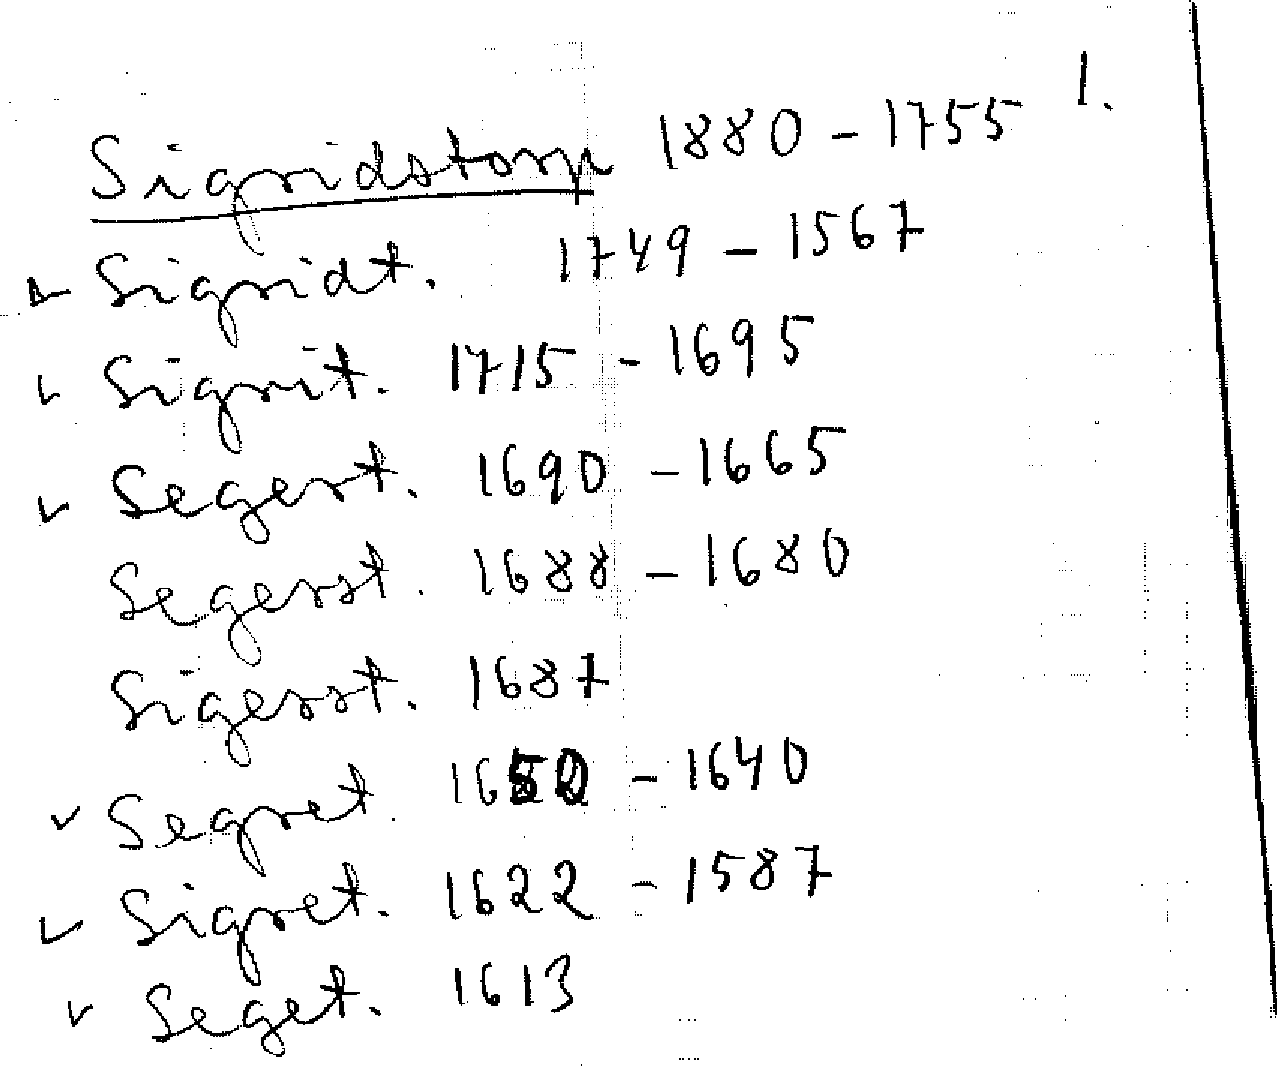 1.
Sigridstorp 1880 - 1755
Sigridt. 1749 - 1567
Sigrit. 1715 - 1695
Segert. 1690 - 1665
Segerst. 1688 - 1680
Sigerst. 1687
Segret. 1650 - 1640
Sigret. 1622 - 1587
Seget. 1613